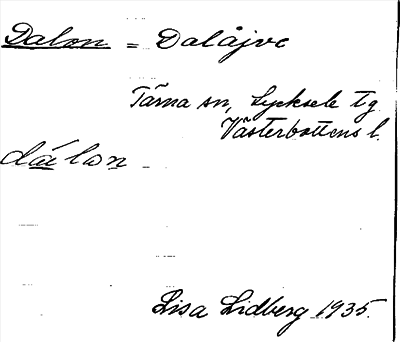 Dalon = Dalåjve
Tärna sn, Lycksele tg
Västerbottens l.
dálon
Lisa Lidberg 1935.